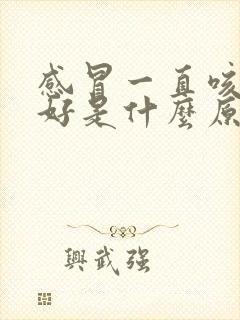 感冒一直咳
好是什麼原
興武强